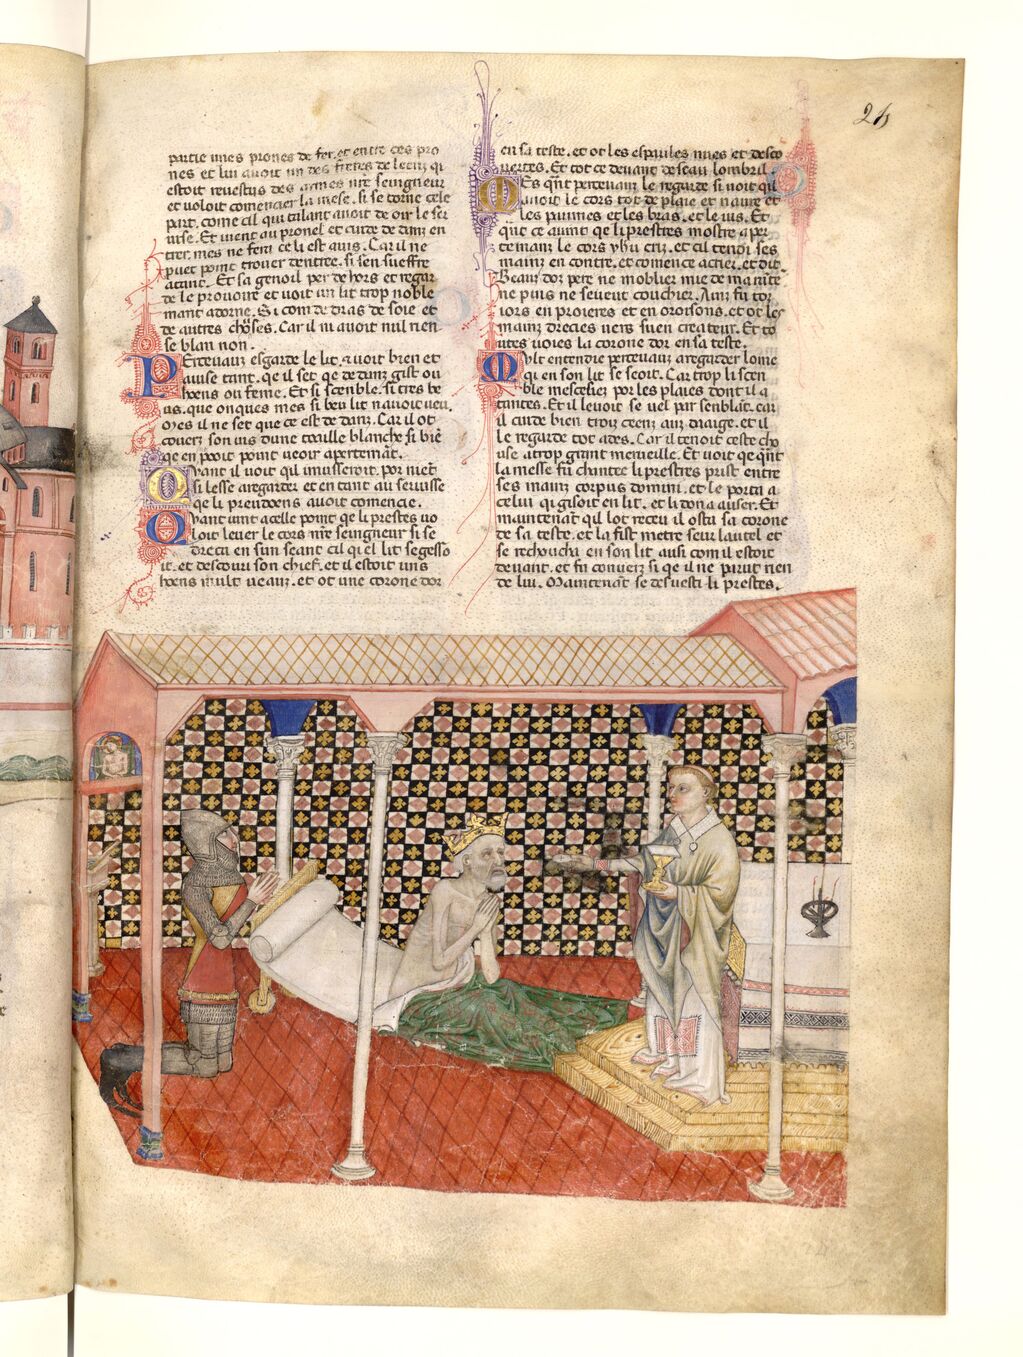 26
partie unes prones de fer. et entre ces pro
nes et lui auoit un des freres de leenz qi
estoit reuestus des armes nre seingneur
et voloit comencier la mese. Si se torne cele
part. come cil qui talant auoit de oir le ser
uise. Et uient au pronel et cuide dedanz en
trer. mes ne fera ce li est auis. Car il ne
puet point trouer dentree. si sen sueffre
atant. Et sa genoil per dehors et regar
de le prouoire et voit un lit trop noble
mant adorne. Si com de dras de soie et
de autres choses. Car il ni auoit nul rien
se blan non.
Perceuaux esgarde le lit. auoit bien et
auise tant. qe il set qe dedanz gist ou
hoens ou feme. Et si scenble. si tres be
us. que onques mes si beu lit nauoit ueu.
Mes il ne set que ce est dedanz. Car il ot
couert son uis dune touaille blanche si biē
qe en pooit point ueoir apertemāt.
Quant il voit qil musseroit por niēt
si lesse aregarder et entant au seruisse
qe li preudoens auoit comencie.
Quant uint a celle point qe li prestes uo
loit leuer le cors nre seingneur si se
dreca en sun seant cil qi el lit se gesso
it. et descouri son chief. et il estoit uns
hoens mult ueauz. et ot une corone dor
en sa teste. et ot les espaules nues et desco
uertes. Et tot ce deuant deseau lombril.
Et qānt perceuaux le regarde si uoit qil
auoit le cors tot de plaie et naure et
les paumes et les bras. et le uis. Et
qānt ce auint qe li prestres mostre aper
temanz le cors yhu crist. et cil tendi ses
mainz en contre. et comence acrier. et dit.
Beau doz pere ne moblier mie de ma rāte
ne puis ne seueut couchier. Ainz fu tor
iors en proieres et en orosons. et ot les
mainz drecies uers suen createur. Et to
utes uoies la corone dor en sa teste.
Mult entendie perceuaux aregarder lome
qi en son lit se seoit. Car trop li scen
ble mesesiez por les plaies dont il a
tantes. Et il le uoit se uel par senblāt. car
il cuide bien trois cenz anz draige. et il
le regarde tot ades. Car il tenoit ceste cho
use a trop grant merueille. Et voit qe qānt
la messe fu chantee li prestres prist entre
ses mainz corpus domini. et le porta a
celui qi gisoit en lit. et li dona a user. Et
maintenāt qil lot receu il osta sa corone
de sa teste. et la fist metre seur lautel et
se rechoucha en son lit ausi com il estoit
deuant. et fu conuerz si qe il ne parut rien
de lui. Maintenāt se desuesti li prestes.